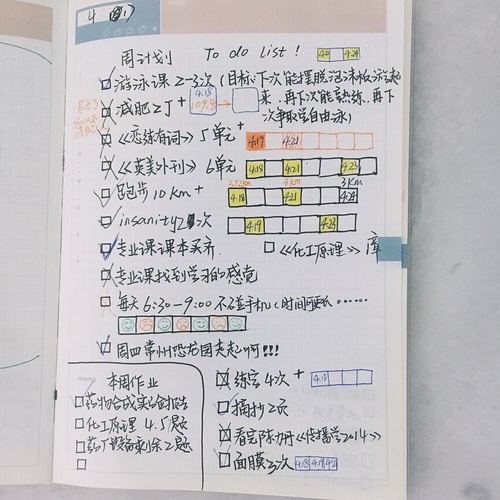 4
周计划 To do list! 4.24
游泳课 2-3次(目标:下次能摆脱泡沫板游起来,再下次能熟练,再下次争取学自由泳)
减肥2斤+ 4.18 109.8
《恋练有词》5单元+ 4.19 4.21
《英美外刊》6单元 4.18 4.21 4.23
跑步10km+ 4.18 4.21 3km 4.24 3km
insanity 2次 4.19 4.23
专业课课本买齐 《化工原理》
专业课找到学习的感觉
每天6:30-9:00不碰手机(时间……
周四常州恐龙园走起啊!!!
本周作业
药物合成实验报告
化工原理 4.5题
药厂设备剩余2题
练字4次+ 4.18
摘抄2页
看完陈力丹《传播学2014》
面膜3次 4.18 4.19